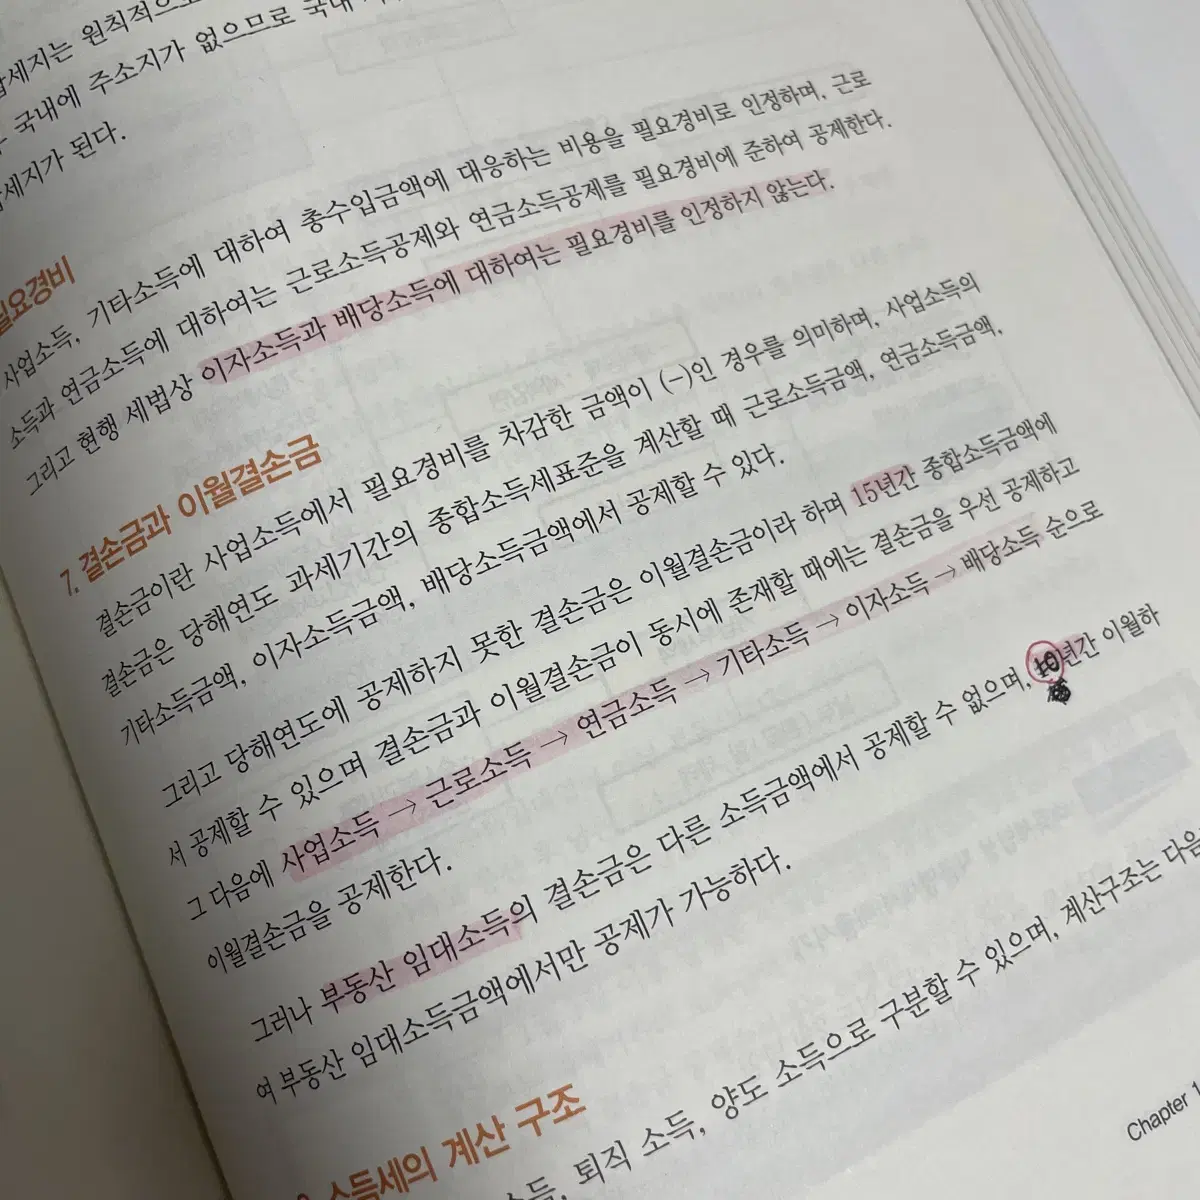 세지는 원칙적으로
국내에 주소지가 없으므로 국내
세지가 된다.
필요경비
사업소득, 기타소득에 대하여 총수입금액에 대응하는 비용을 필요경비로 인정하며, 근로
소득과 연금소득에 대하여는 근로소득공제와 연금소득공제를 필요경비에 준하여 공제한다.
그리고 현행 세법상 이자소득과 배당소득에 대하여는 필요경비를 인정하지 않는다.
7. 결손금과 이월결손금
결손금이란 사업소득에서 필요경비를 차감한 금액이 (-)인 경우를 의미하며, 사업소득의
결손금은 당해연도 과세기간의 종합소득세표준을 계산할 때 근로소득금액, 연금소득금액,
기타소득금액, 이자소득금액, 배당소득금액에서 공제할 수 있다.
그리고 당해연도에 공제하지 못한 결손금은 이월결손금이라 하며 15년간 종합소득금액에
서 공제할 수 있으며 결손금과 이월결손금이 동시에 존재할 때에는 결손금을 우선 공제하고
그 다음에 사업소득 → 근로소득 → 연금소득 → 기타소득 → 이자소득 → 배당소득 순으로
이월결손금을 공제한다.
그러나 부동산 임대소득의 결손금은 다른 소득금액에서 공제할 수 없으며, 10년간 이월하
여 부동산 임대소득금액에서만 공제가 가능하다.
소득세의 계산 구조
소득, 퇴직 소득, 양도 소득으로 구분할 수 있으며, 계산구조는 다음
Chapter 1